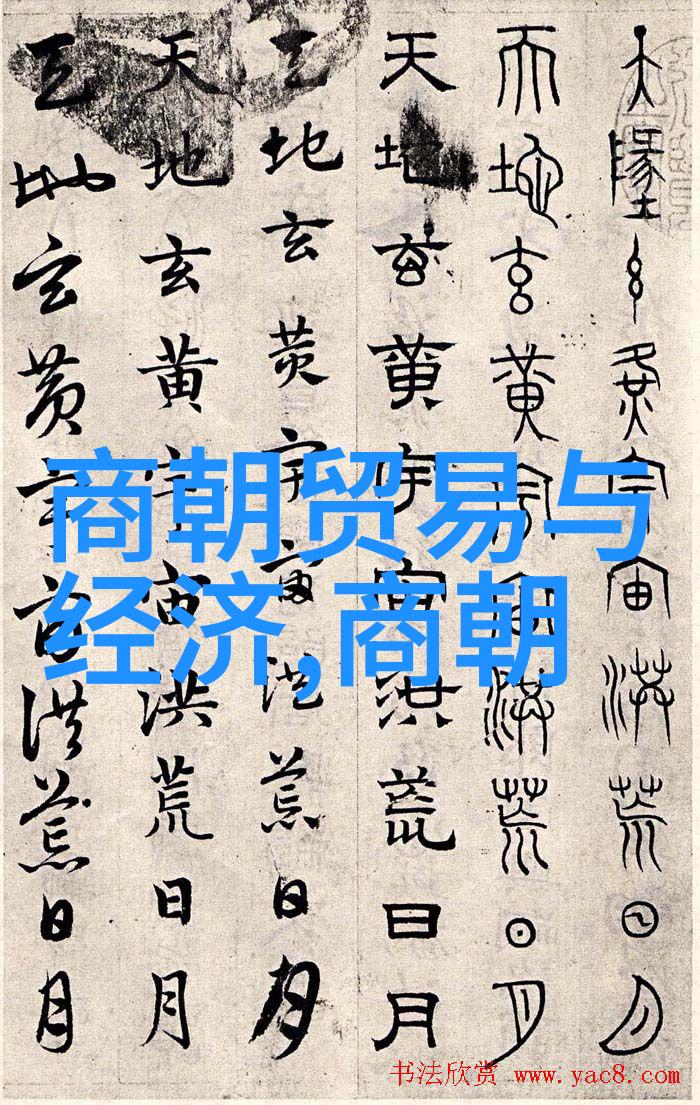 天墬玄黄宇宙洪荒日月
天地玄黄宇宙洪荒日月
天地玄黄宇宙洪荒日月
天地玄黄宇宙洪荒日月
天地玄黄宇宙洪荒日月
天地玄黄宇宙洪荒日月
商朝贸易与
经济,商朝
书法欣赏 www.yac8.com